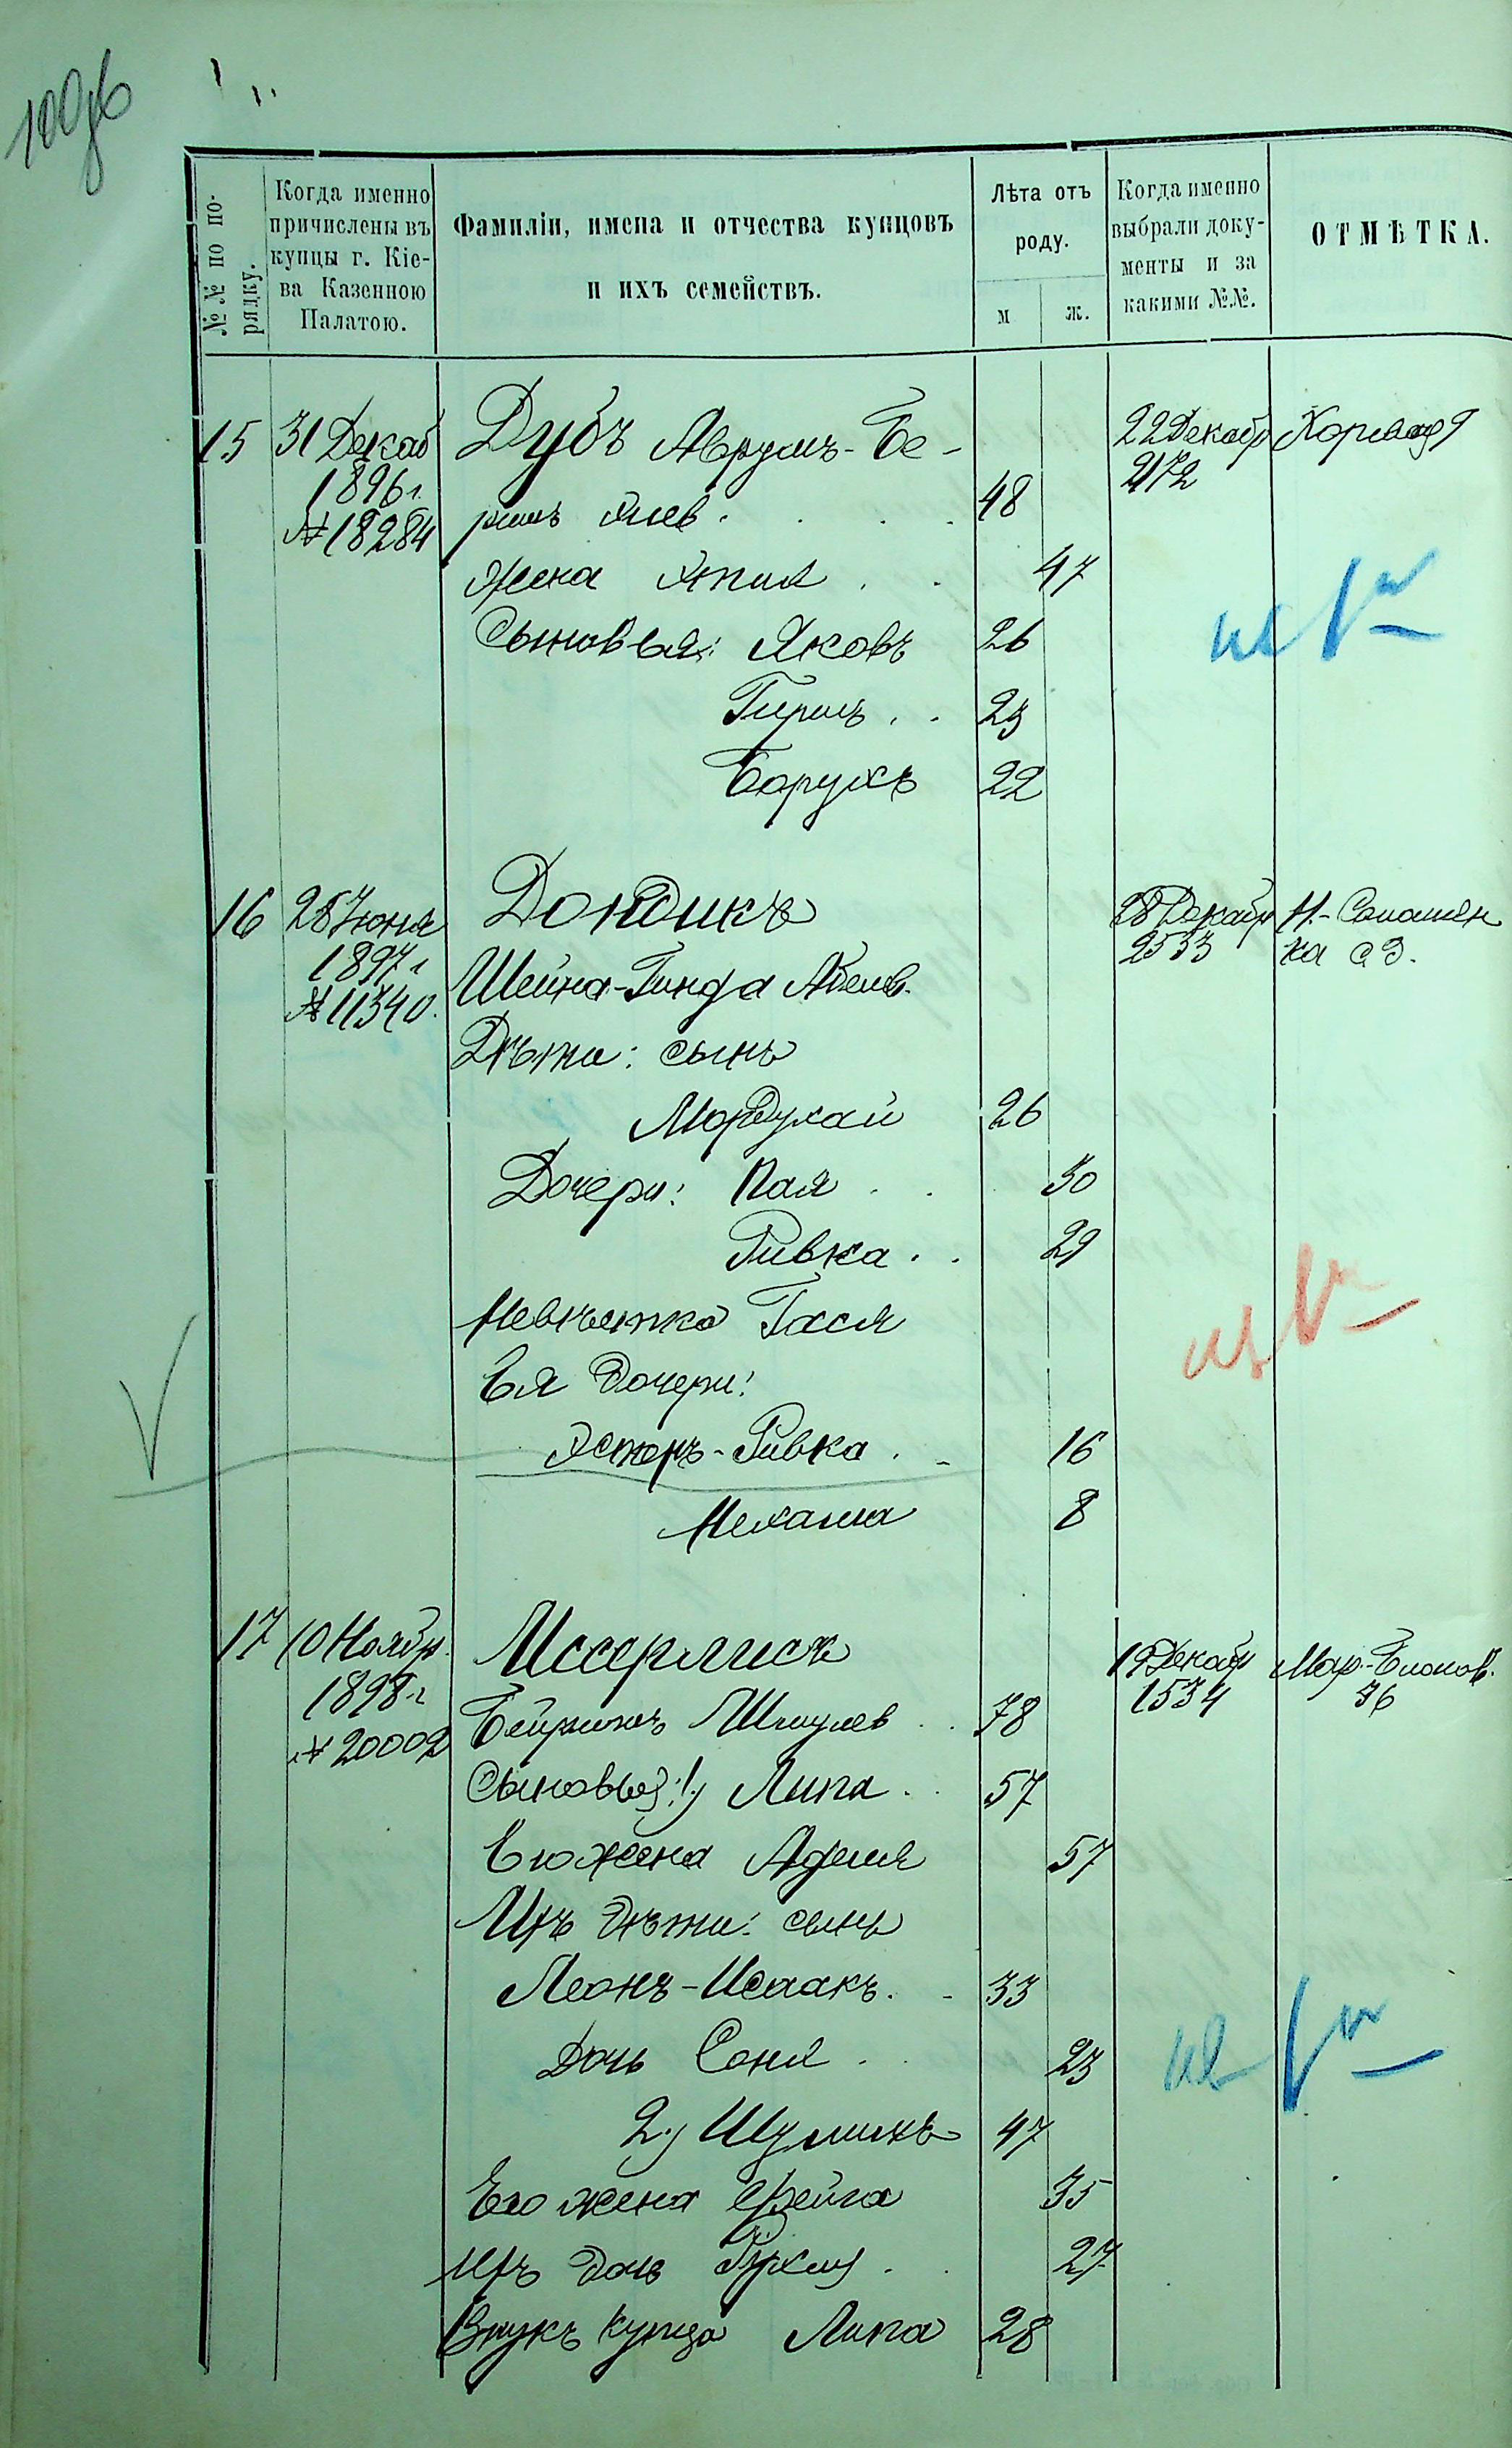 100об
№№ по порядку.
Когда именно причислены въ купцы г. Кіева Казенною Палатою.
Фамиліи, имена и отчества купцовъ и ихъ семействъ.
Лѣта отъ роду.
м
ж.
Когда именно выбрали документы и за какими №№.
ОТМѢТКА.
15 31 Декаб Дубъ Аврумъ-Бе- 22 Декабр
1896 г. 2172
№ 18284 48
Жена 47
Сыновья: Яковъ 26
Гиршъ . . 23
Борухъ 22
16 28 Іюня Дондикъ 28 Декабр Н.-Соломен
1897 г 2533 ка с З.
№ 11340. Шейна-Гинда Абелев.
Дѣти: сынъ
Мордухай 26
Дочери: Пая . . 30
Ривка . . 29
Невѣстка Гася
Ея дочери:
Эстеръ-Ривка . - 16
Нехама 8
17 10 Ноябр. Иссерлисъ 19 Декабр Мар.-Благов.
1898 г 1534 36
№ 20002 Шмулев . . 78
Сыновья: 1) Липа . . 57
Его жена Аделя 57
Ихъ дѣти: сынъ
Леонъ-Исаакъ. - 33
Дочь Соня . . 23
2) Шулимъ 47
Его жена Фейга 35
Ихъ дочь . . 27
Внукъ купца Липа 28